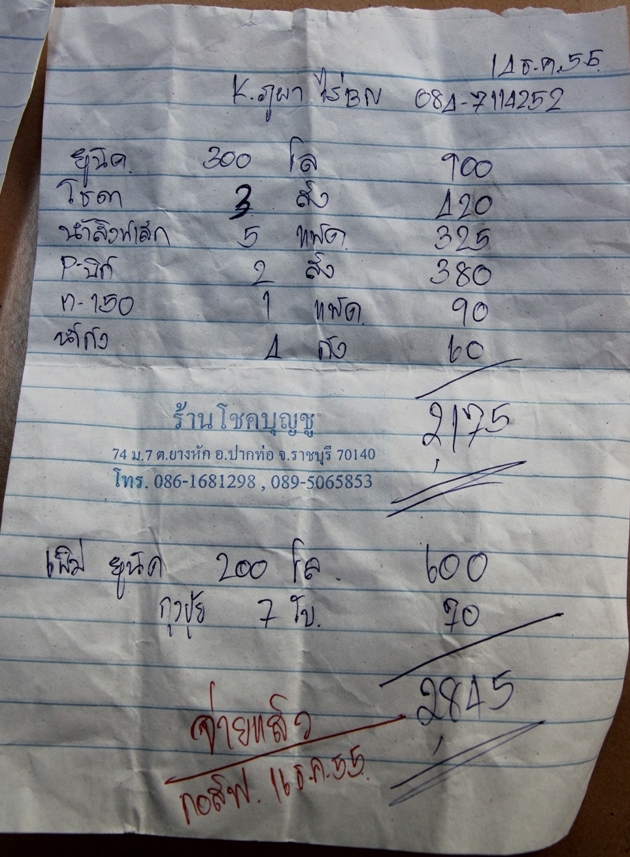 14 ธ.ค. 55
K. ภูผา ไร่ 084-7114252
ยูนิค 300 โล 900
โซดา 3 ลัง 420
น้ำสิงห์เล็ก 5 แพ็ค. 325
P-บิก 2 ลัง 380
ท-150 1 แพ็ค. 90
น้ำถัง 4 ถัง 60
2,175
ร้านโชคบุญชู
74 ม.7 ต.ยางหัก อ.ปากท่อ จ.ราชบุรี 70140
โทร. 086-1681298 , 089-5065853
เพิ่ม ยูนิค 200 โล 600
ถุงปุ๋ย 7 ใบ. 70
2,845
จ่ายแล้ว
16 ธ.ค. 55